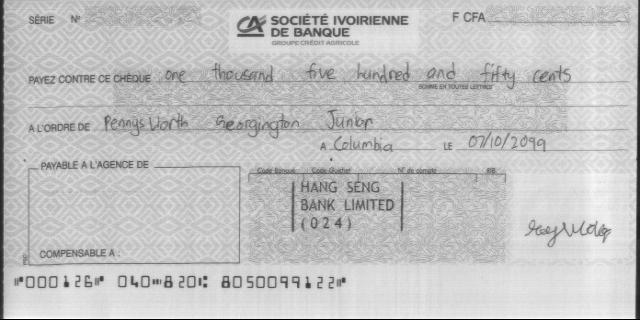 SÉRIE N° CA SOCIÉTÉ IVOIRIENNE F CFA
DE BANQUE
GROUPE CRÉDIT AGRICOLE
PAYEZ CONTRE CE CHÈQUE one thousand five hundred and fifty cents
SOMME EN TOUTES LETTRES
A L'ORDRE DE Pennys Worth Georgington Junior
A Columbia LE 07/10/2099
PAYABLE A L'AGENCE DE
Code Banque Code Guichet N° de compte RIB
HANG SENG
BANK LIMITED
(024)
COMPENSABLE A :
"000126" 040 820 8050099122"